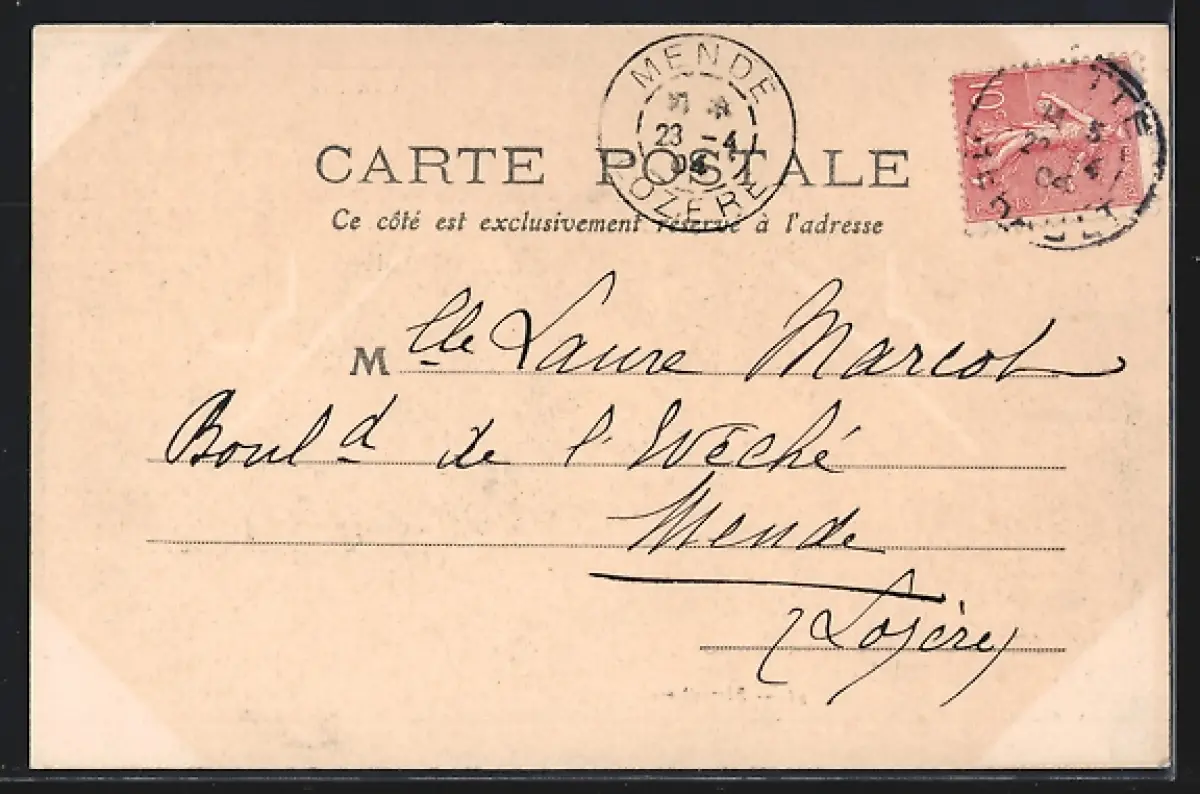 MENDE
23 -4
04
LOZERE
10c
CARTE POSTALE
Ce côté est exclusivement réservé à l'adresse
Mlle Laure Marcot
Bould de l'Evêché
Mende
(Lozère)